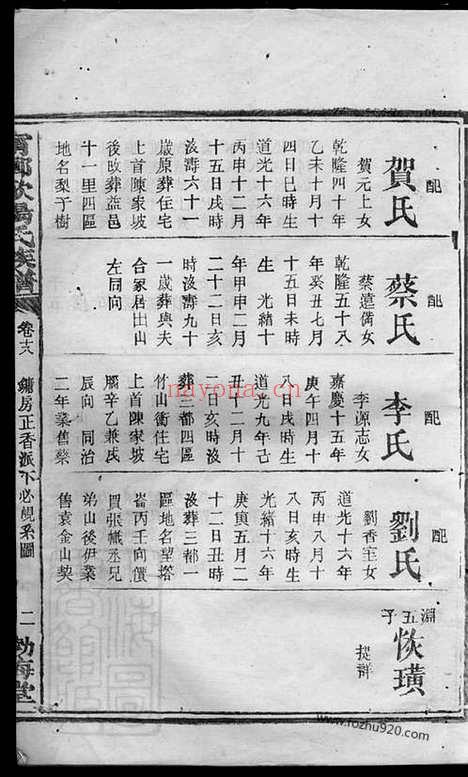 配
賀氏
賀元上女
乾隆四十年
乙未十月十
四日巳時生
道光十六年
丙申十二月
十五日戌時
沒壽六十一
歲原葬住宅
上首陳家坡
後改葬益邑
十一里四區
地名梨子樹
配
蔡氏
蔡遠備女
乾隆五十八
年癸丑七月
十五日未時
生 光緒十
年甲申二月
二十二日亥
時沒壽九十
一歲葬與夫
合冢居出山
左同向
配
李氏
李源志女
嘉慶十五年
庚午四月十
八日戌時生
道光九年己
丑十二月十
二日亥時沒
葬三都四區
竹山衝住宅
上首陳家坡
腦辛乙兼戌
辰向 同治
二年業舊蔡
配
劉氏
劉香室女
道光十六年
丙申八月十
八日亥時生
光緒十六年
庚寅五月二
十二日丑時
沒葬三都一
區地名望塔
崙丙壬向價
買張幟丞兄
弟山後伊業
售袁金山契
淵五子
恢璜
提詳
氏族譜
卷十八
鏞房正香派下必
系圖
二
海堂
nayona.cn
www.rozhu920.com